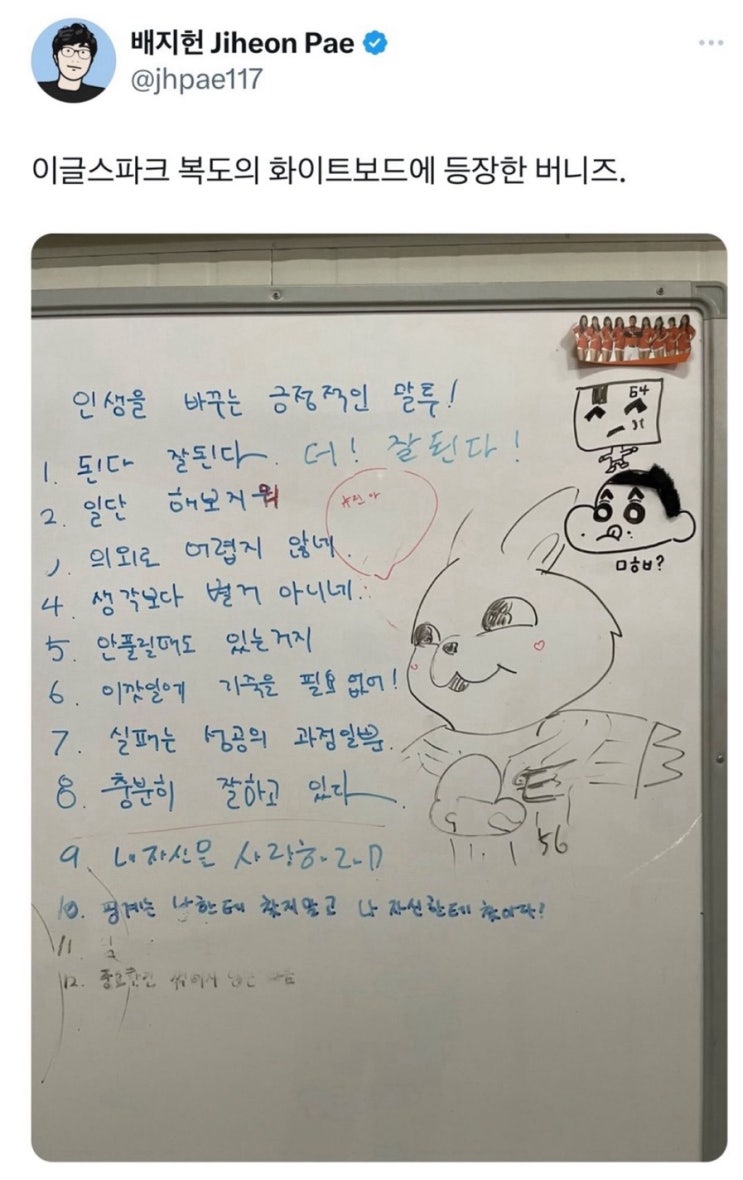 배지헌 Jiheon Pae
@jhpae117
이글스파크 복도의 화이트보드에 등장한 버니즈.
인생을 바꾸는 긍정적인 말투!
1. 된다 잘된다. 더! 잘된다!
2. 일단 해보지 뭐
3. 의외로 어렵지 않네.
4. 생각보다 별거 아니네.
5. 안풀릴때도 있는거지
6. 이깟일에 기죽을 필요 없어!
7. 실패는 성공의 과정일뿐.
8. 충분히 잘하고 있다.
9. 내 자신을 사랑하라
10. 핑계는 남한테 찾지말고 나 자신한테 찾아라!
11.
12. 중요한건
64
ㅁㅎㅂ?
56